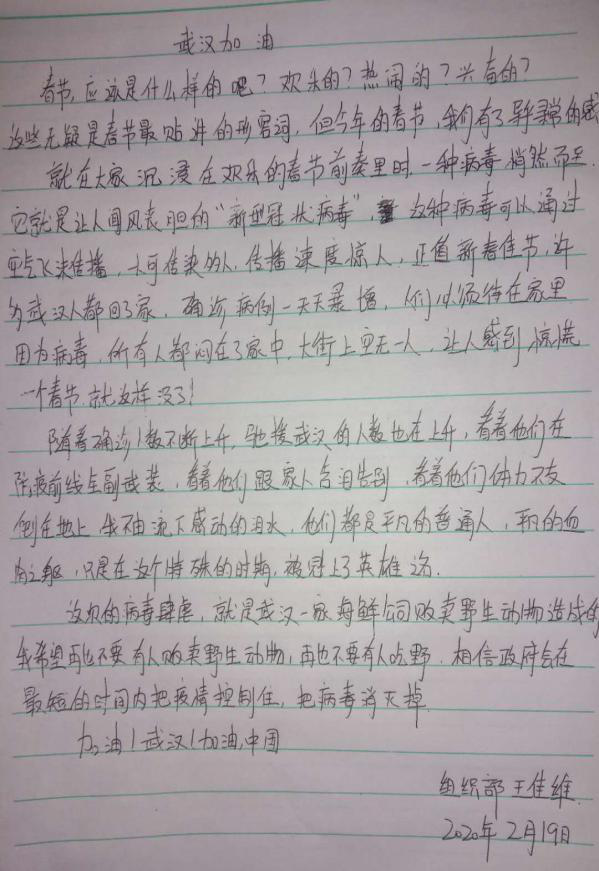 武汉加油
春节,应该是什么样的吧?欢乐的?热闹的?兴奋的?
这些无疑是春节最贴进的形容词,但今年的春节,我们有了异常的感
就在大家沉浸在欢乐的春节前奏里时,一种病毒悄然而至.
它就是让人闻风丧胆的“新型冠状病毒”,这种病毒可以通过
空气飞沫传播,人可传染多人,传播速度惊人,正值新春佳节,许
多武汉人都回了家,确诊病例一天天暴增,人们必须待在家里
因为病毒,所有人都闷在了家中,大街上空无一人,让人感到惊慌
一个春节就这样没了!
随着确诊人数不断上升,驰援武汉的人数也在上升,看着他们在
防疫前线全副武装,看着他们跟家人含泪告别,看着他们体力不支
倒在地上,我不由流下感动的泪水,他们都是平凡的普通人,平凡的血
肉之躯,只是在这个特殊的时期,被冠上了英雄之名.
这次的病毒肆虐,就是武汉一家海鲜公司贩卖野生动物造成的
我希望再也不要有人贩卖野生动物,再也不要有人吃野.相信政府会在
最短的时间内把疫情控制住,把病毒消灭掉.
加油!武汉!加油,中国
组织部 王佳维.
2020年2月19日